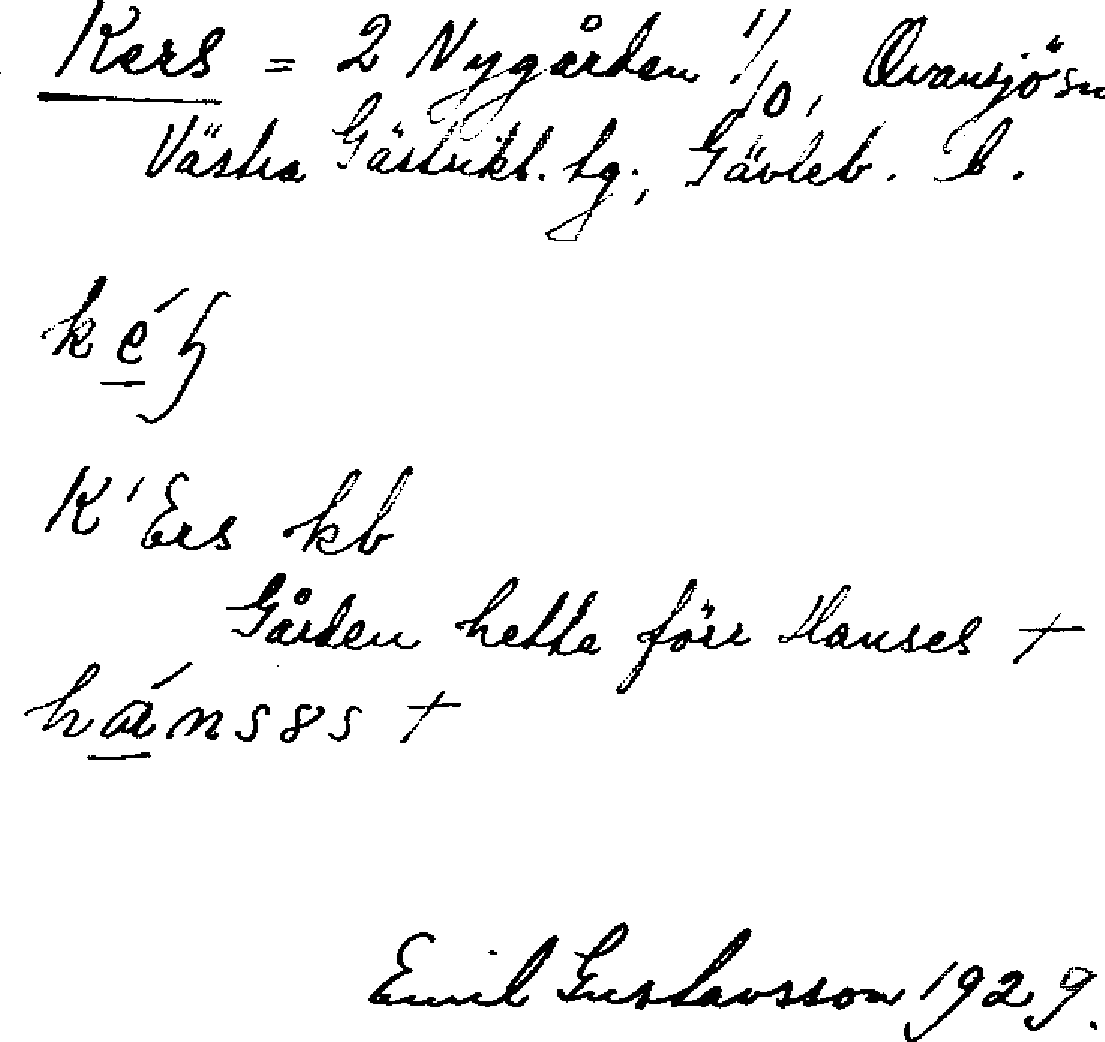 Kers = 2 Nygården 1/10, Ovansjö sn
Västra Gästrikl. tg., Gävleb. l.
K'Ers kb
Gården hette förr Hanses +
Emil Gustavsson 1929.